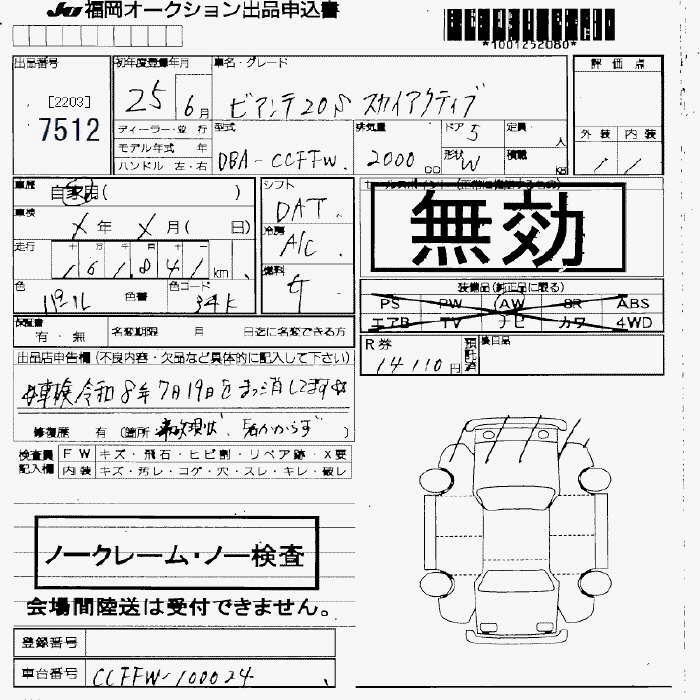 JU福岡オークション出品申込書
*1001252080*
出品番号 [2203] 7512
初年度登録年月 25 6月
車名・グレード ビアンテ20S スカイアクティブ
評価点
外装 内装
ディーラー・並行
モデル年式 年
ハンドル 左・右
型式 DBA-CCFFW
排気量 2000 CC
ドア 5
形状 W
定員 人
積載 KG
車歴 自家用( )
車検 X年 X月( 日)
走行 十万千百十一
161,841 km
色 パール
色番
色コード 34K
シフト DAT
冷房 A/C
燃料
セールスポイント
無効
装備品(純正品に限る)
PS PW AW SR ABS
エアB TV ナビ カワ 4WD
保証書 有・無
名変期限 月 日迄に名変できる方
R券 14110円
預託済
後日品
出品店申告欄(不良内容・欠品など具体的に記入して下さい)
車検令和8年7月19日をまっ消してます
修復歴 有 (箇所 現状 )
検査員記入欄
FW キズ・飛石・ヒビ割・リペア跡・X要
内装 キズ・汚レ・コゲ・穴・スレ・キレ・破レ
ノークレーム・ノー検査
会場間陸送は受付できません。
登録番号
車台番号 CCFFW-100024